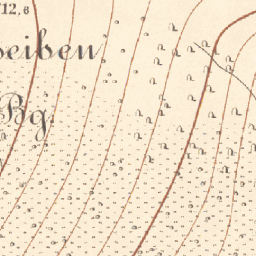 712,6
seiben
Bg.